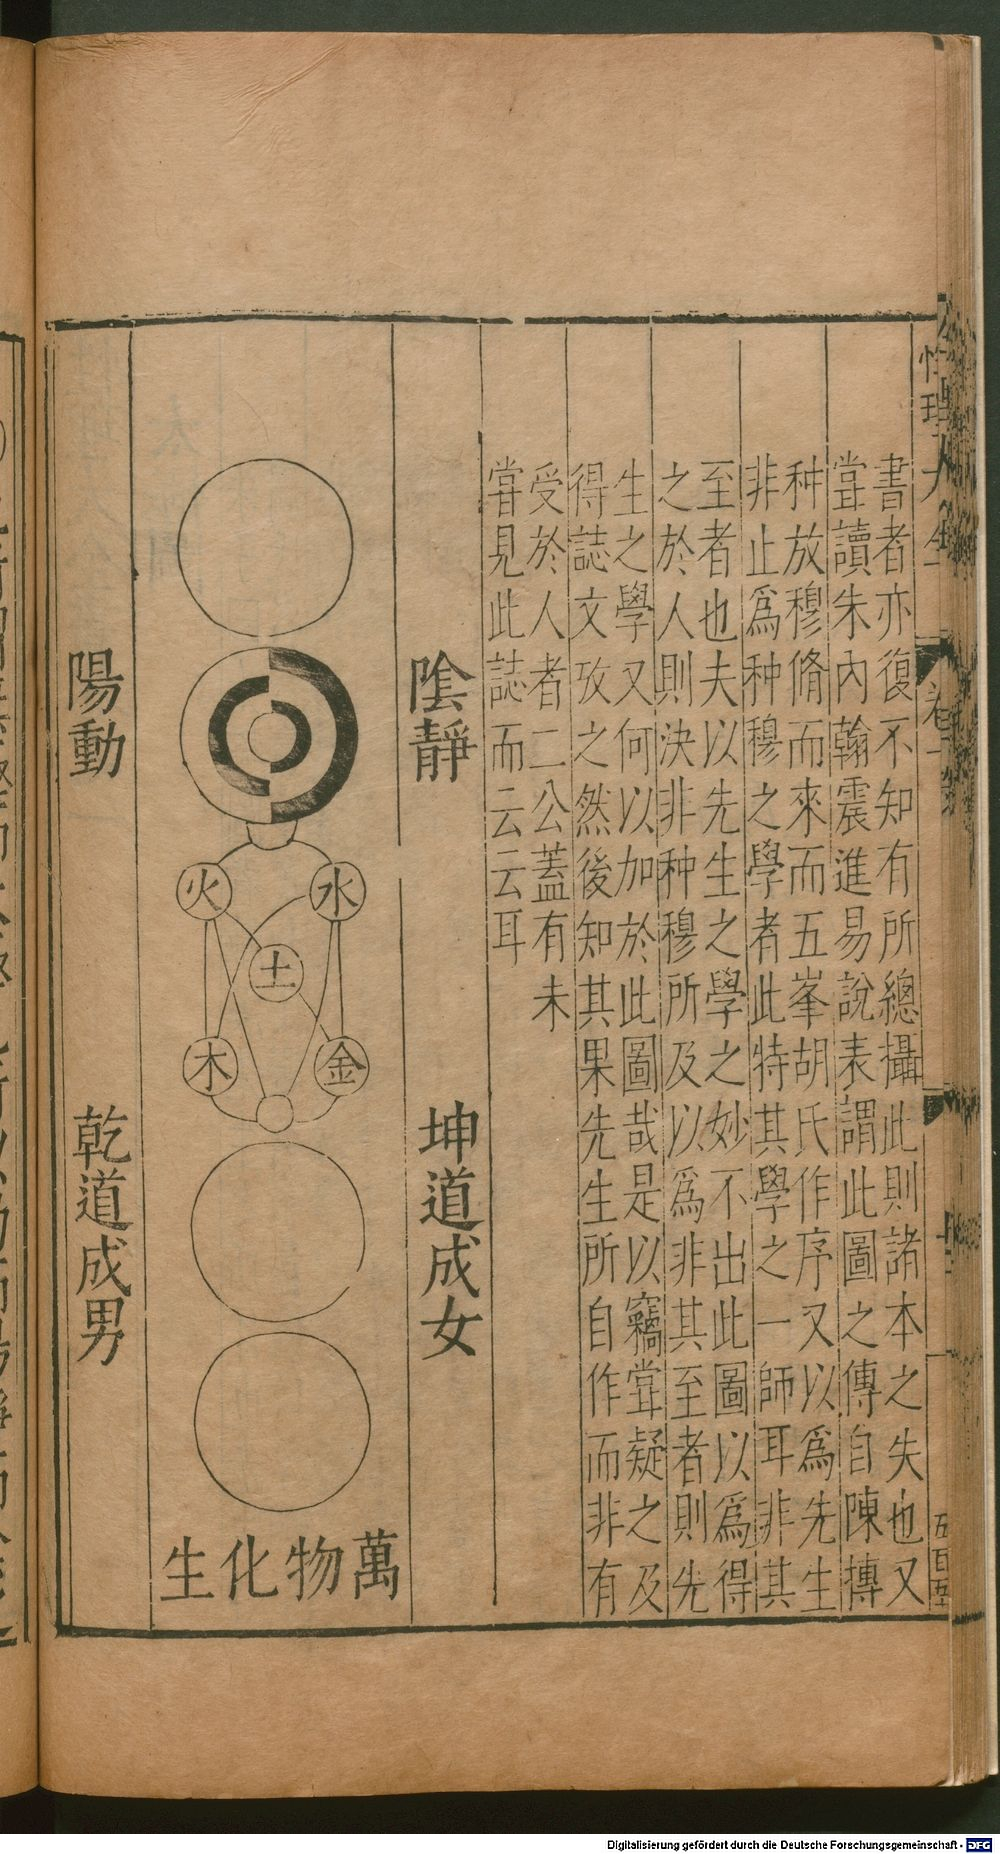 性理大全
書者亦復不知有所總攝此則諸本之失也又
甞讀朱內翰震進易說表謂此圖之傳自陳摶
种放穆脩而來而五峯胡氏作序又以爲先生
非止爲种穆之學者此特其學之一師耳非其
至者也夫以先生之學之妙不出此圖以爲得
之於人則決非种穆所及以爲非其至者則先
生之學又何以加於此圖哉是以竊甞疑之及
得誌文攷之然後知其果先生所自作而非有
受於人者二公蓋有未
甞見此誌而云云耳
陰靜
坤道成女
水
火
土
金
木
萬物化生
陽動
乾道成男
Digitalisierung gefördert durch die Deutsche Forschungsgemeinschaft - DFG